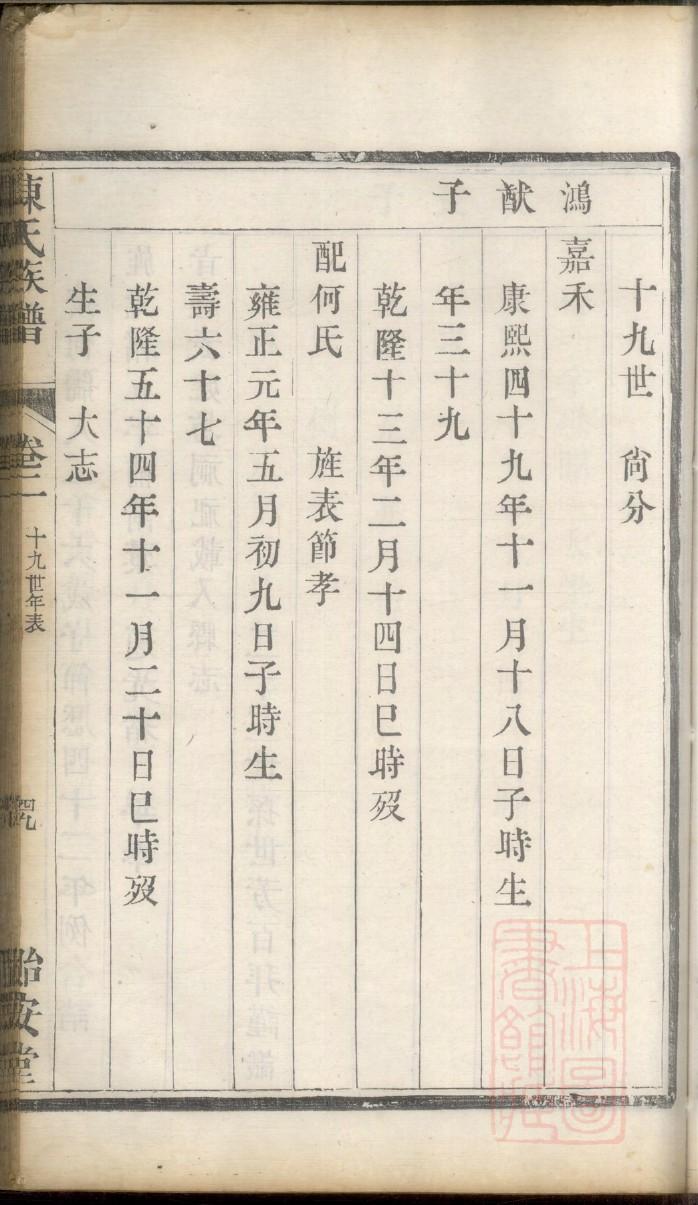 十九世　尙分
鴻猷子
嘉禾
康熙四十九年十一月十八日子時生
年三十九
乾隆十三年二月十四日巳時歿
配何氏　旌表節孝
雍正元年五月初九日子時生
壽六十七
乾隆五十四年十一月二十日巳時歿
生子大志
陳氏族譜
卷二
十九世年表
怡安堂
上海圖書館藏